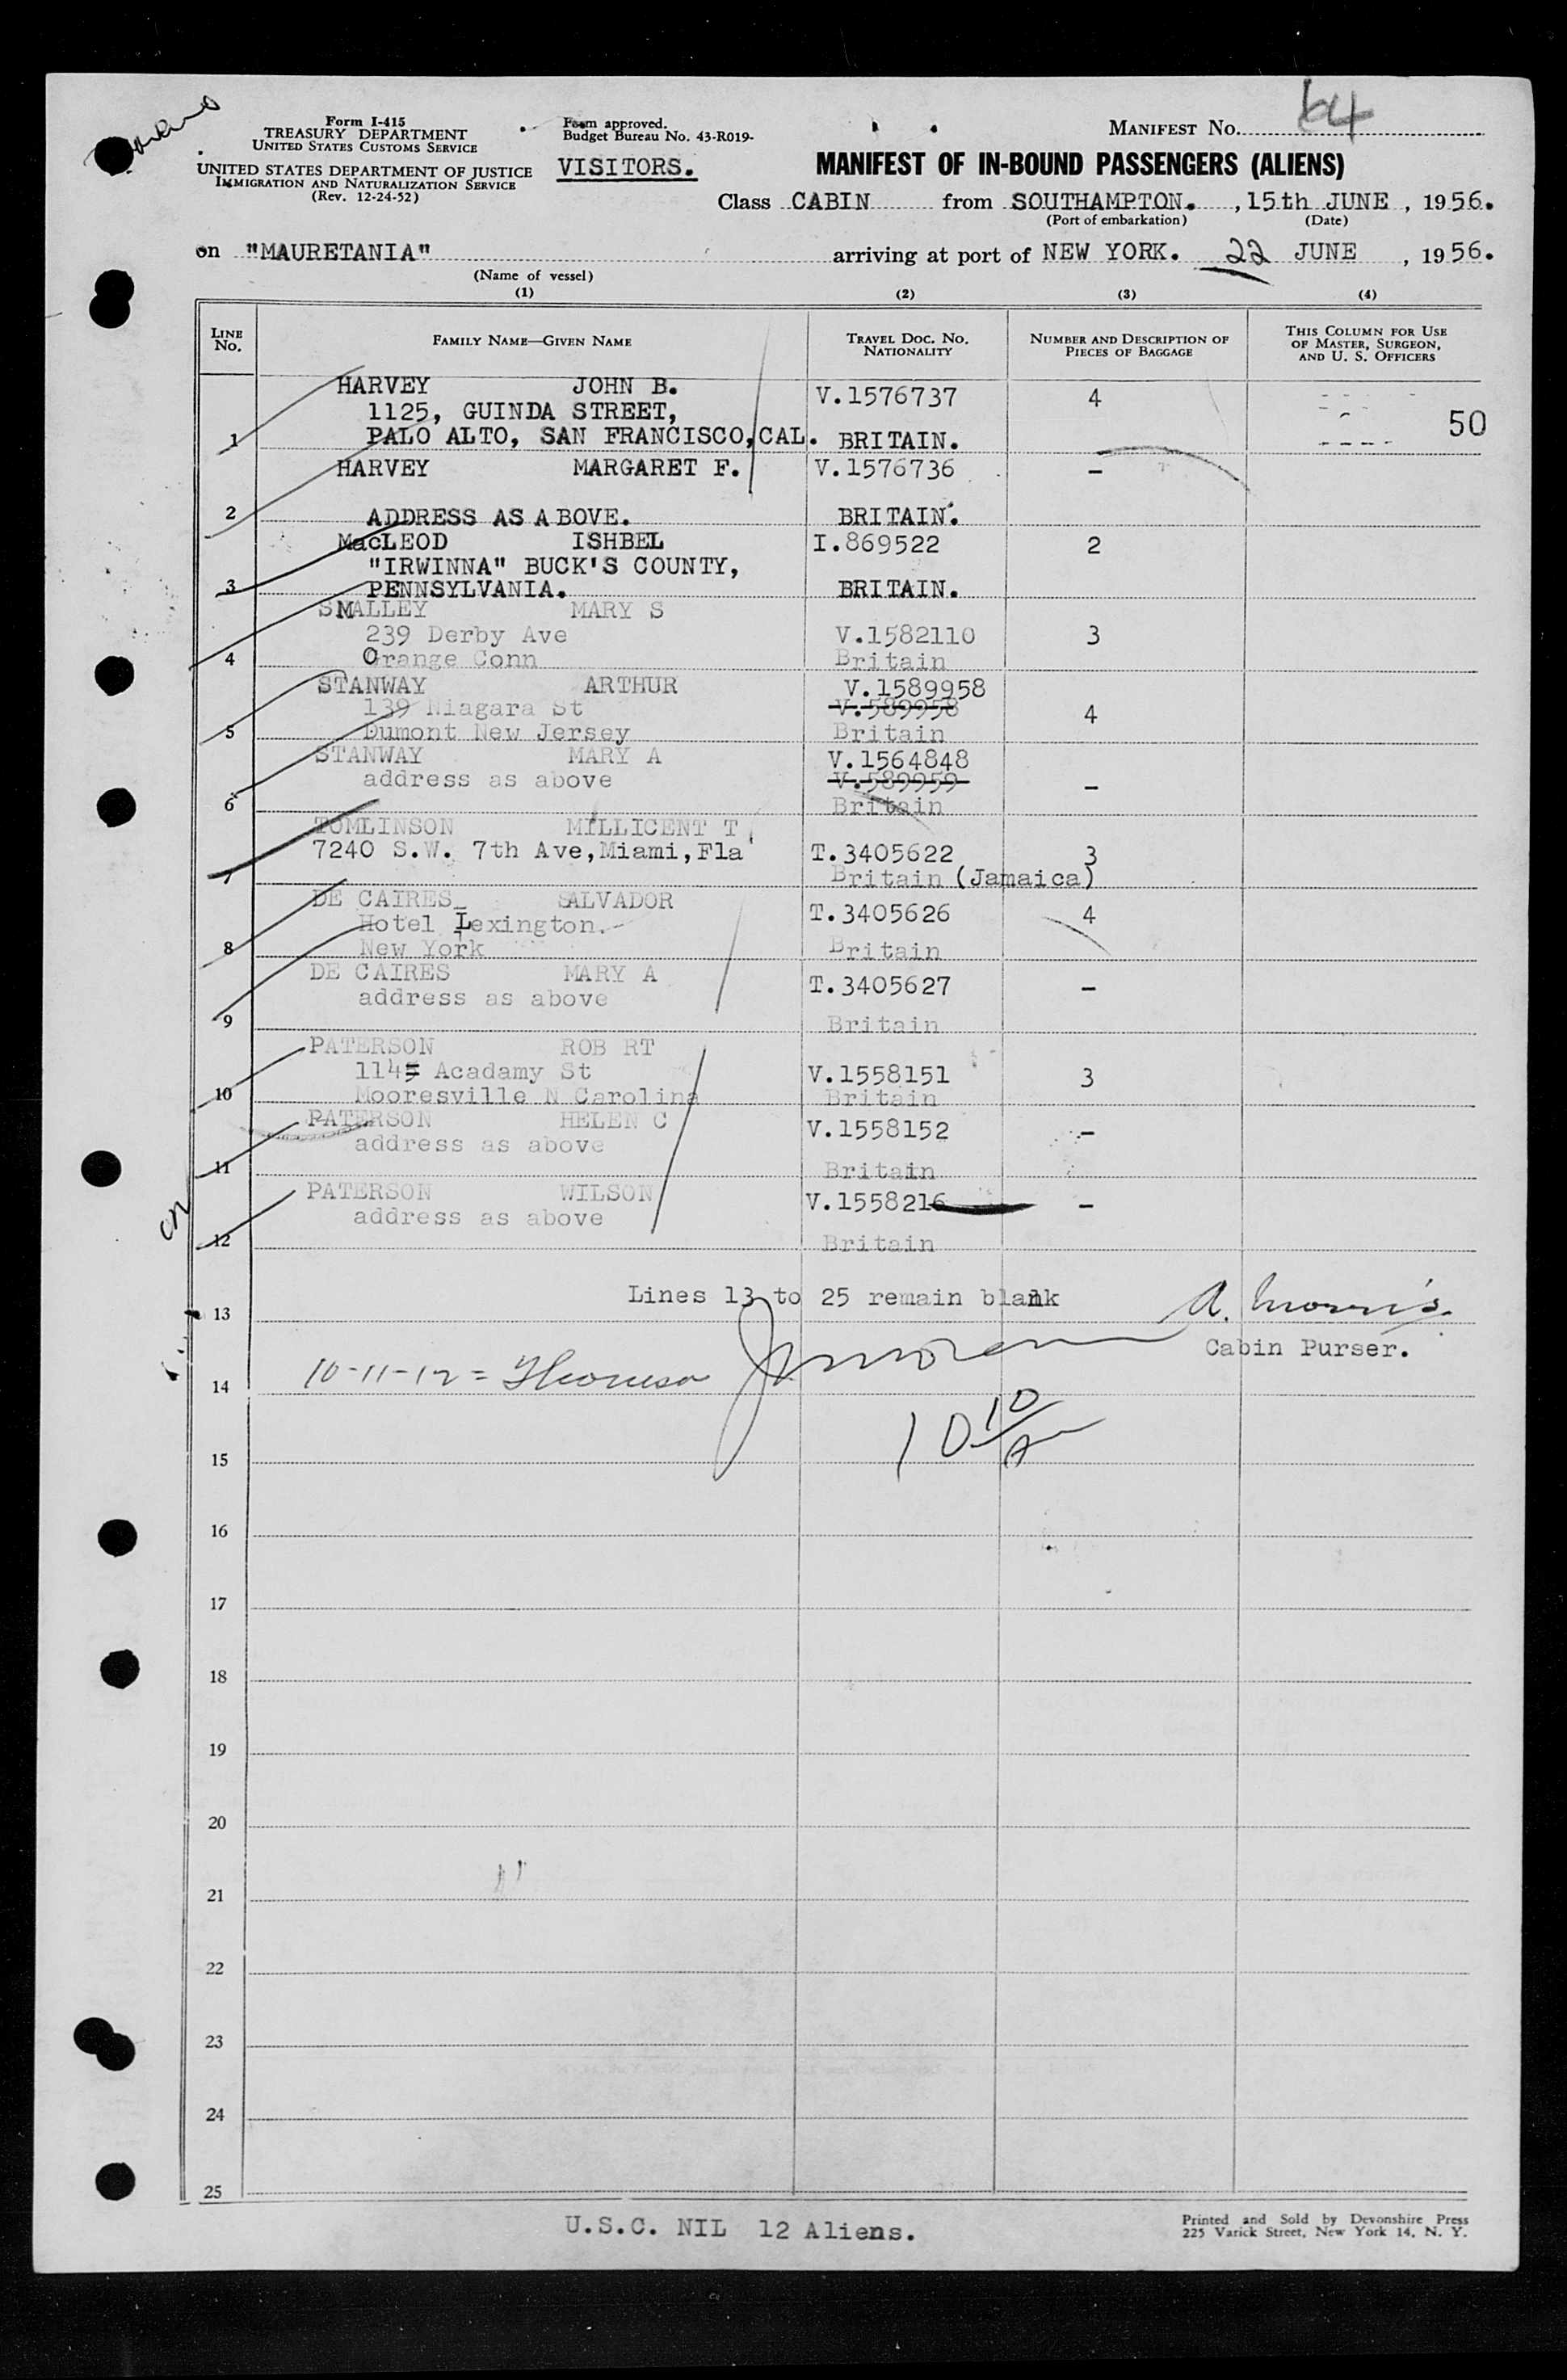 64
Form I-415
TREASURY DEPARTMENT
UNITED STATES CUSTOMS SERVICE
UNITED STATES DEPARTMENT OF JUSTICE
IMMIGRATION AND NATURALIZATION SERVICE
(Rev. 12-24-52)
Form approved.
Budget Bureau No. 43-R019-
VISITORS.
MANIFEST NO.
MANIFEST OF IN-BOUND PASSENGERS (ALIENS)
Class CABIN from SOUTHAMPTON. , 15th JUNE , 1956.
(Port of embarkation) (Date)
on "MAURETANIA" arriving at port of NEW YORK. 22 JUNE , 1956.
(Name of vessel)
(1) (2) (3) (4)
LINE NO. FAMILY NAME—GIVEN NAME TRAVEL DOC. NO. NATIONALITY NUMBER AND DESCRIPTION OF PIECES OF BAGGAGE THIS COLUMN FOR USE OF MASTER, SURGEON, AND U. S. OFFICERS
HARVEY JOHN B. V.1576737 4
1125, GUINDA STREET, 50
1 PALO ALTO, SAN FRANCISCO,CAL. BRITAIN.
HARVEY MARGARET F. V.1576736 –
2 ADDRESS AS ABOVE. BRITAIN.
MacLEOD ISHBEL I.869522 2
"IRWINNA" BUCK'S COUNTY,
3 PENNSYLVANIA. BRITAIN.
SMALLEY MARY S
239 Derby Ave V.1582110 3
4 Orange Conn Britain
STANWAY ARTHUR V.1589958
139 Niagara St V.589958 4
5 Dumont New Jersey Britain
STANWAY MARY A V.1564848
address as above V.589959 –
6 Britain
TOMLINSON MILLICENT T
7240 S.W. 7th Ave,Miami,Fla T.3405622 3
7 Britain (Jamaica)
DE CAIRES SALVADOR T.3405626 4
Hotel Lexington.
8 New York Britain
DE CAIRES MARY A T.3405627 –
address as above
9 Britain
PATERSON ROB RT
1145 Acadamy St V.1558151 3
10 Mooresville N Carolina Britain
PATERSON HELEN C V.1558152 –
address as above
11 Britain
PATERSON WILSON V.1558216 –
address as above
12 Britain
Lines 13 to 25 remain blank
13 A. Morris
Cabin Purser.
10-11-12 =
14
10 10/A
15
16
17
18
19
20
21
22
23
24
25
U.S.C. NIL 12 Aliens.
Printed and Sold by Devonshire Press
225 Varick Street, New York 14, N. Y.